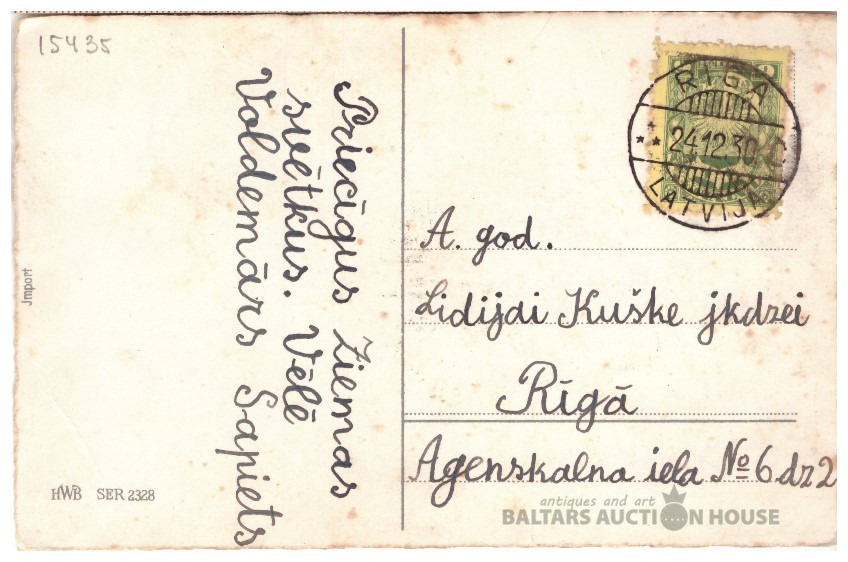 15435
Priecīgus Ziemas
svētkus. Vēlē
Voldemārs Sapiets
Jmport
HWB SER 2328
RĪGA
24.12.30
LATVIJA
A. god.
Lidijai Kuške jkdzei
Rīgā
Agenskalna iela № 6 dz 2
antiques and art
BALTARS AUCTION HOUSE